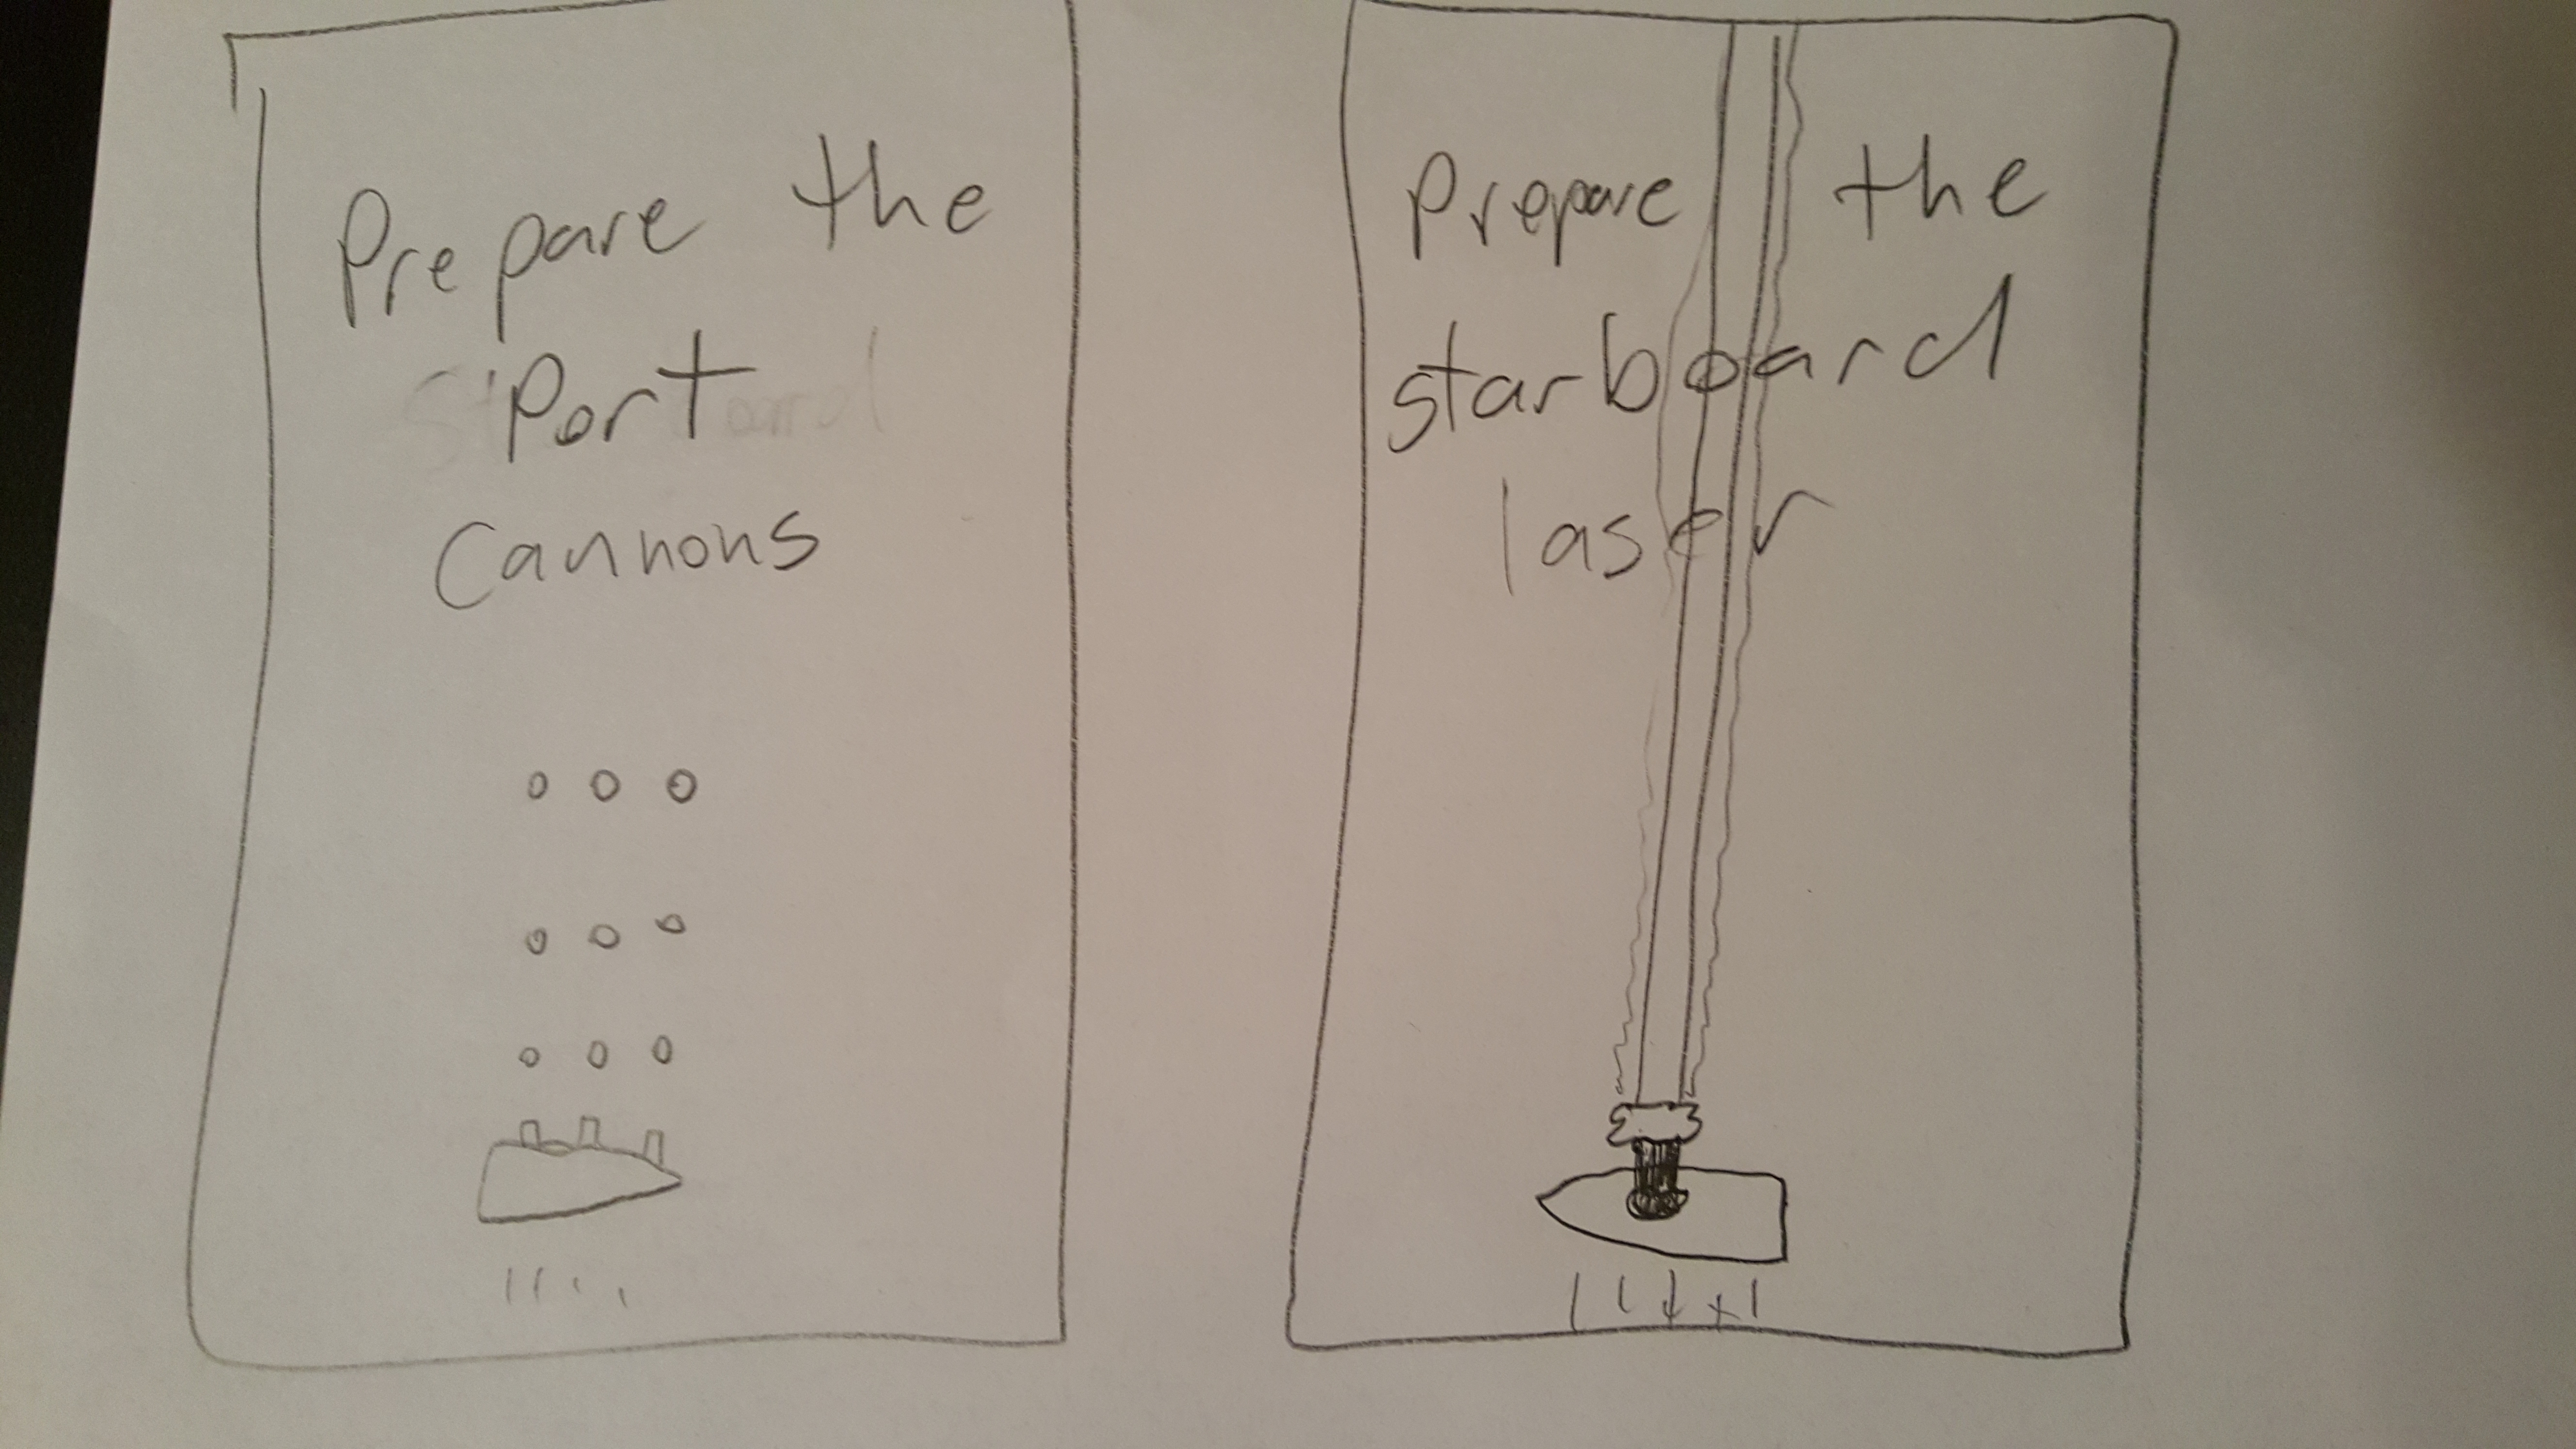 Prepare the
Port
Cannons
Prepare the
Starboard
laser